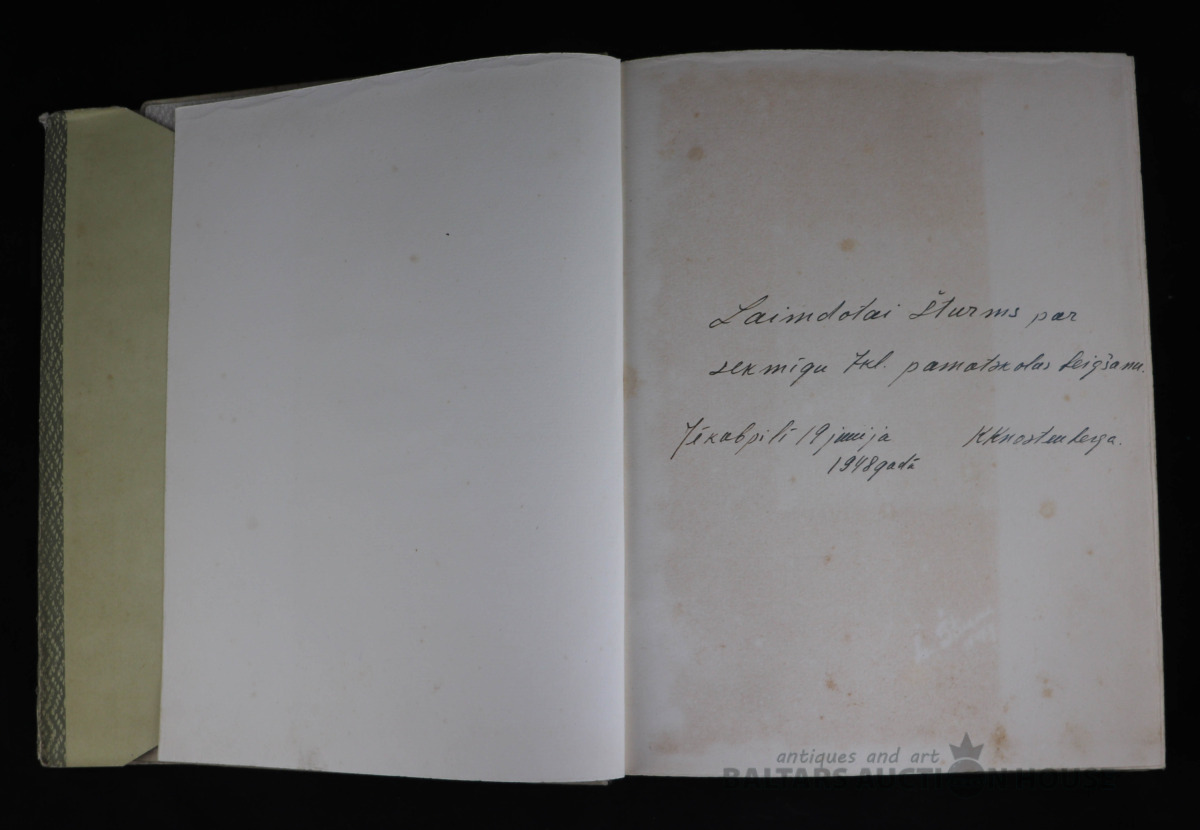 Laimdotai Šturms par
sekmīgu 7kl. pamatskolas beigšanu.
Jēkabpilī 19 jūnija
K Knostenberga.
1948 gadā
antiques and art
BALTARS AUCTION HOUSE